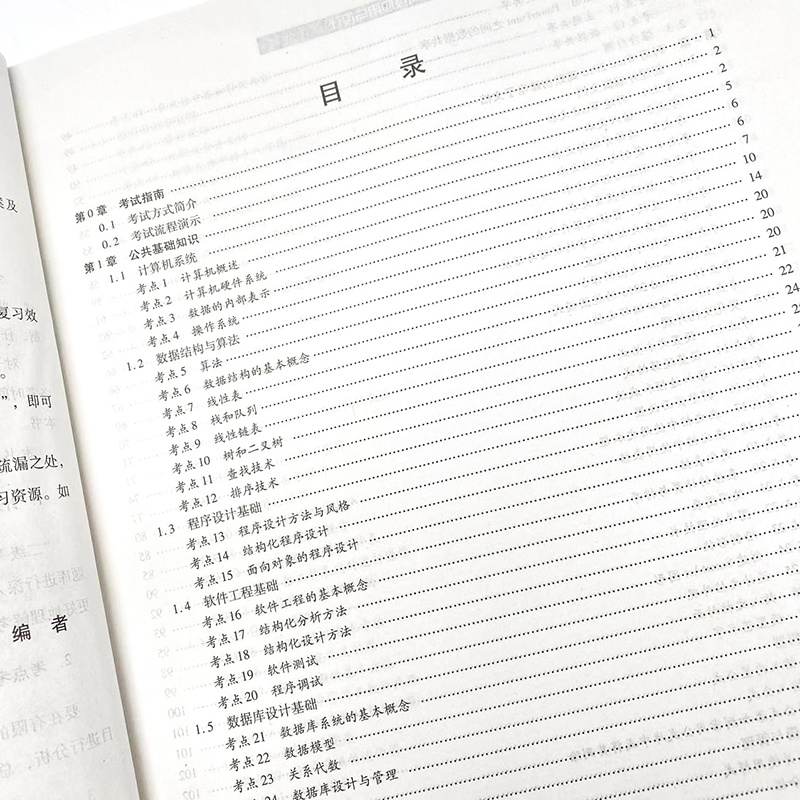 及
复习效
。
”，即可
疏漏之处，
习资源。如
编 者
目 录
第0章 考试指南 1
0.1 考试方式简介 2
0.2 考试流程演示 2
第1章 公共基础知识 5
1.1 计算机系统 6
考点1 计算机概述 6
考点2 计算机硬件系统 7
考点3 数据的内部表示 10
考点4 操作系统 14
1.2 数据结构与算法 20
考点5 算法 20
考点6 数据结构的基本概念 20
考点7 线性表 21
考点8 栈和队列 22
考点9 线性链表 24
考点10 树和二叉树
考点11 查找技术
考点12 排序技术
1.3 程序设计基础
考点13 程序设计方法与风格
考点14 结构化程序设计
考点15 面向对象的程序设计
1.4 软件工程基础
考点16 软件工程的基本概念
考点17 结构化分析方法
考点18 结构化设计方法
考点19 软件测试
考点20 程序调试
1.5 数据库设计基础
考点21 数据库系统的基本概念
考点22 数据模型
考点23 关系代数
考点24 数据库设计与管理